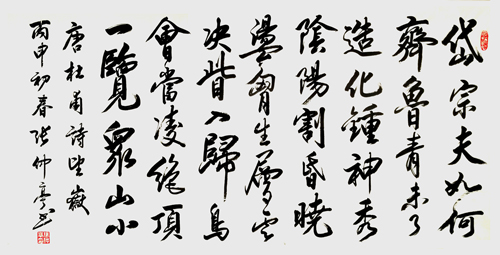 岱宗夫如何
齊魯青未了
造化鍾神秀
陰陽割昏曉
盪胷生層雲
决眥入歸鳥
會當凌絶頂
一覽眾山小
唐杜甫詩望嶽
丙申初春張仲亭書